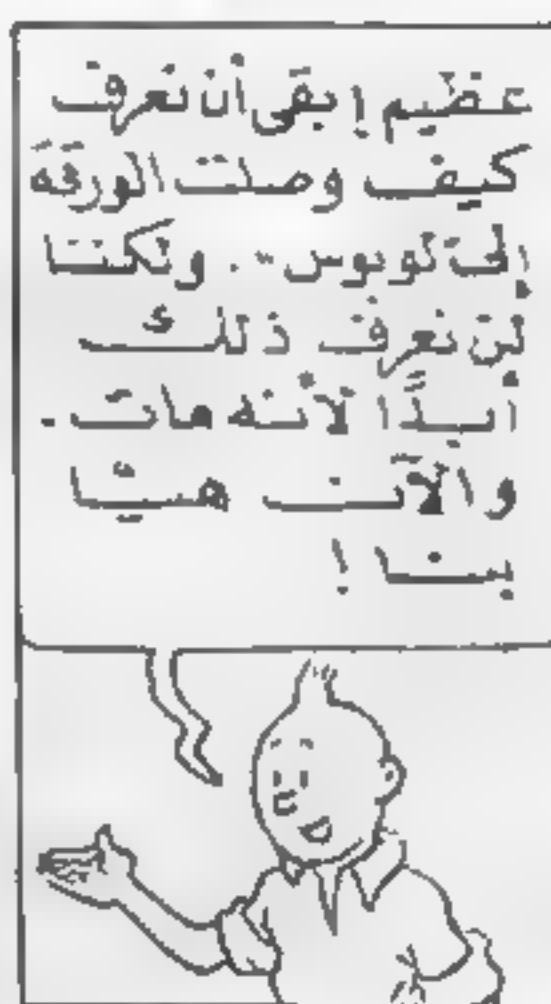 عظيم! بقى أن نعرف
كيف وصلت الورقة
إلى لوبوس .. ولكننا
لن نعرف ذلك
أبدًا لأنه مات .
والآن هيّا
بنا !